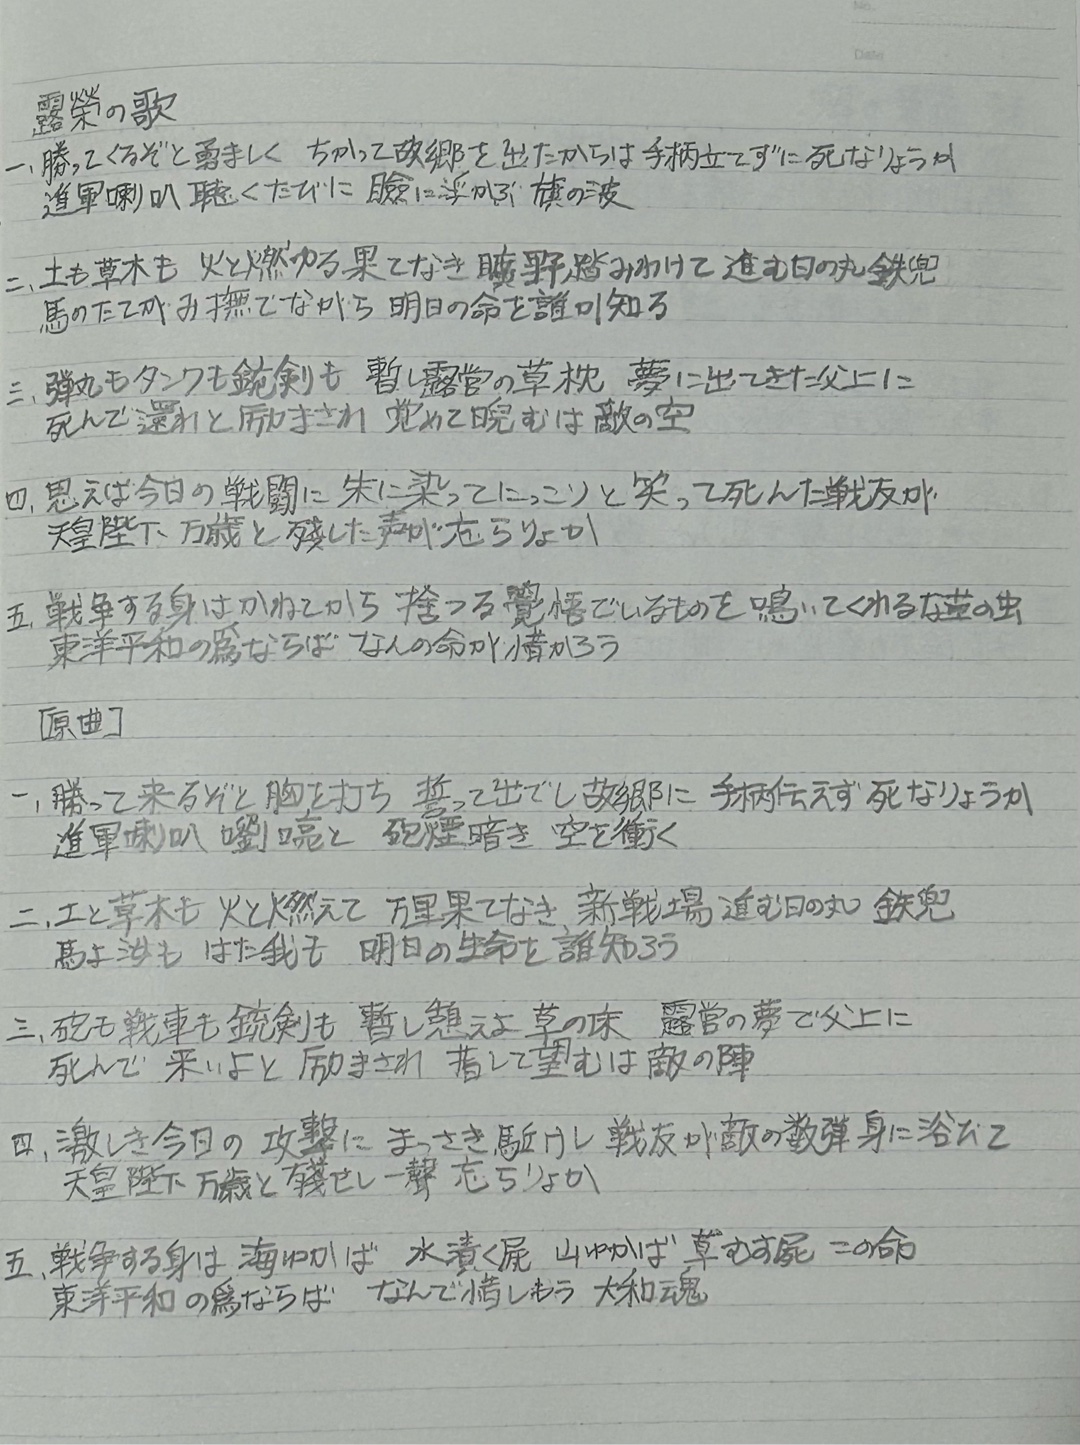 No.
Date
露榮の歌
一、勝ってくるぞと勇ましく ちかって故郷を出たからは 手柄立てずに死なりょうか
進軍喇叭聴くたびに 瞼に浮かぶ 旗の波
二、土も草木も 火と燃ゆる果てなき曠野踏みわけて 進む日の丸鉄兜
馬のたてがみ撫でながら 明日の命を誰か知る
三、弾丸もタンクも銃剣も 暫し露営の草枕 夢に出てきた父上に
死んで還れと励まされ 覚めて睨むは敵の空
四、思えば今日の戦闘に 朱に染ってにっこりと 笑って死んだ戦友が
天皇陛下 万歳と 残した声が忘らりょか
五、戦争する身はかねてから 捨つる覺悟でいるものを 鳴いてくれるな草の虫
東洋平和の爲ならば なんの命が惜かろう
[原曲]
一、勝って来るぞと胸を打ち 誓って出でし故郷に 手柄伝えず死なりょうか
進軍喇叭 嚠喨と 砲煙暗き 空を衝く
二、土と草木も 火と燃えて 万里果てなき 新戦場 進む日の丸 鉄兜
馬よ汝も はた我も 明日の生命を 誰知ろう
三、砲も戦車も銃剣も 暫し憩えよ 草の床 露営の夢で父上に
死んで 来いよと 励まされ 指して望むは敵の陣
四、激しき今日の 攻撃に まっさき駈けし 戦友が敵の数弾身に浴びて
天皇陛下 万歳と 残せし一聲 忘らりょか
五、戦争する身は 海ゆかば 水漬く屍 山ゆかば 草むす屍 この命
東洋平和の爲ならば なんで惜しもう 大和魂